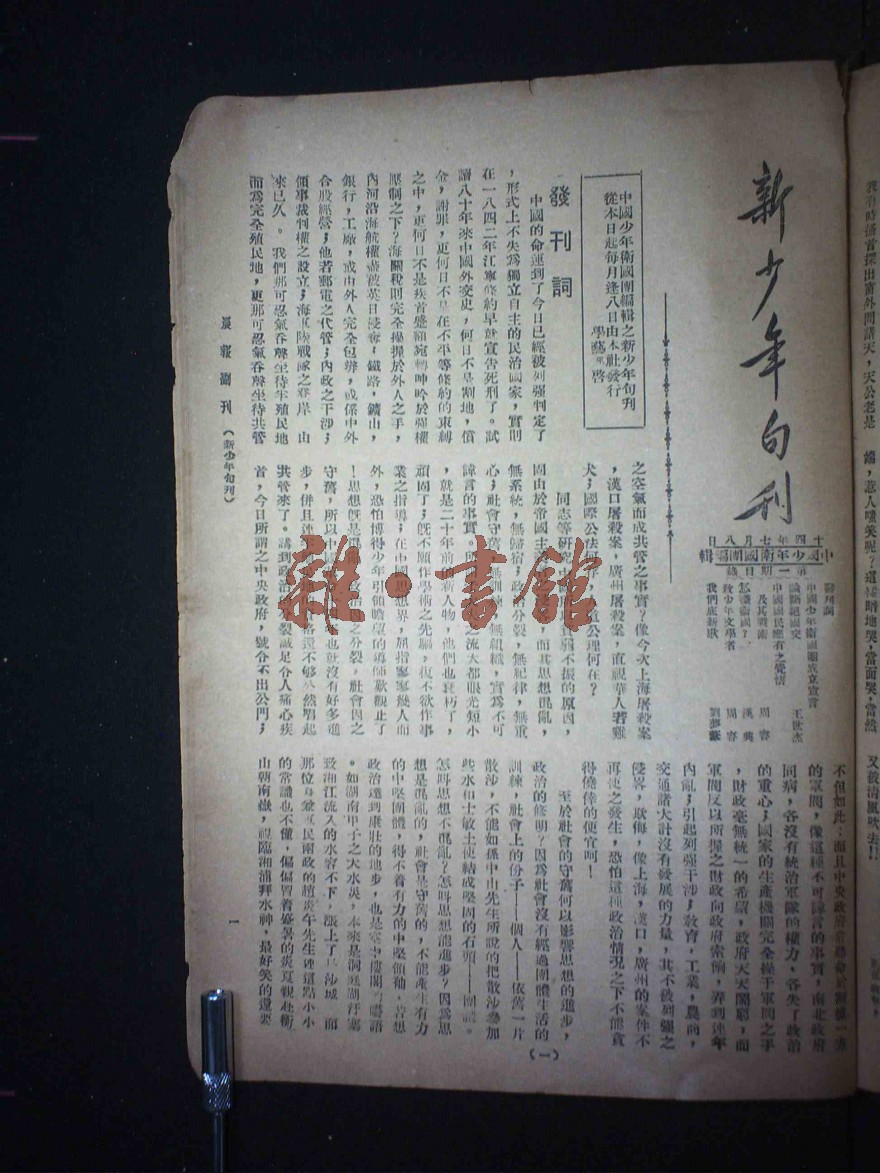 新少年旬刊
十四年七月八日
中國少年衛國團編輯
第一期目錄
發刊詞
中國少年衛國團成立宣言
論經濟絕交 王世杰
中國國民應有之覺悟
及其戰術 周睿
怎樣衛國? 漢典
致少年文學者 周睿
我們底新歌 劉夢葦
中國少年衛國團編輯之新少年旬刊
從本日起每月逢八日由本社發行
學藝 啓
發刊詞
中國的命運到了今日已經被列强判定了
,形式上不失為獨立自主的民治國家,實則
在一八四二年江寧條約早就宣告死刑了。試
讀八十年來中國外交史,何日不是割地,償
金,謝罪,更何日不是在不平等條約的束縛
之中,更何日不是疾首蹙額宛轉呻吟於强權
壓制之下?海關稅則完全操握於外人之手,
內河沿海航權盡被英日侵奪;鐵路,鑛山,
銀行,工廠,或由外人完全包辦,或係中外
合股經營;他若郵電之代管;內政之干涉;
領事裁判權之設立;海軍陸戰隊之登岸,由
來已久。我們那可忍氣吞聲坐待半殖民地
而為完全殖民地,更那可忍氣吞聲坐待共管
之空氣而成共管之事實?像今次上海屠殺案
,漢口屠殺案,廣州屠殺案,直視華人若雞
犬;國際公法何存?人道公理何在?
同志等研究
國由於帝國主 而其思想混亂,
無系統,無歸宿;政治分裂,無紀律,無重
心;社會守舊,無訓練,無組織,實為不可
諱言的事實。所 之流大都眼光短小
,就是二十年前 新人物,他們也衰朽了,
頑固了;既不願作學術之先驅,復不欲作事
業之指導;在中國思想界,屈指寥寥幾人而
外,恐怕博得少年引領瞻望的導師歎觀止了
!思想既是混 政治 之分裂,社會因之
守舊,所以中國 也就沒有好多進
步,併且連 格還不夠公然唱起
共管來了。講到政治 分裂誠足令人痛心疾
首,今日所謂之中央政府,號令不出公門;
不但如此;而且中央政府
的軍閥,像這種不可諱言的事實,南北政府
同病,各沒有統治軍隊的權力,各失了政治
的重心;國家的生產機關完全操于軍閥之手
,財政毫無統一的希望,政府天天鬧窮,而
軍閥反以所握之財政向政府索餉,弄到連年
內亂;引起列强干涉;教育,工業,農商,
交通諸大計沒有發展的力量,其不被列强之
侵畧,欺侮,像上海,漢口,廣州的案件不
再使之發生,恐怕這種政治情况之下不能貪
得僥倖的便宜呵!
至於社會的守舊何以影響思想的進步,
政治的修明?因為社會沒有經過團體生活的
訓練,社會上的份子——個人——依舊一片
散沙,不能如孫中山先生所說的把散沙參加
些水和士敏土使結成堅固的石頭——團體。
怎呌思想不混亂?怎呌思想能進步?因為思
想是混亂的,社會是守舊的,不能產生有力
的中堅團體,得不着有力的中堅領袖,若想
政治達到康壯的地步,也是空中樓閣的囈語
。如湖南甲子之大水災,本來是洞庭湖汙塞
致湘江流入的水容不下,漲上了長沙城,而
那位身兼軍民兩政的趙炎午先生連這點小小
的常識也不懂,偏偏冒着盛暑的炎夏親赴衡
山朝南嶽,親臨湘浦拜水神,最好笑的還要
(一)
晨報副刊 (新少年旬刊)
一
我有時播首探出窗外問諸天,天公老是
端,惹人嗤笑呢?這樣暗地哭,當面哭,當然
又被清風吹去!!